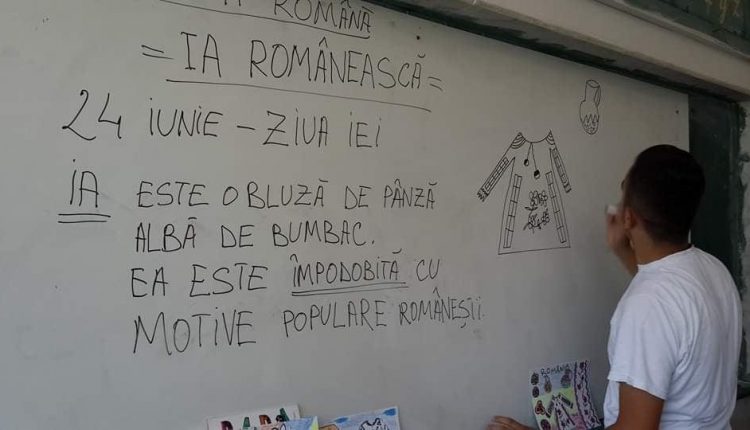 ROMÂNĂ
= IA ROMÂNEASCĂ =
24 IUNIE - ZIUA IEI
IA ESTE O BLUZĂ DE PÂNZĂ
ALBĂ DE BUMBAC.
EA ESTE ÎMPODOBITĂ CU
MOTIVE POPULARE ROMÂNEȘTI.
ROMÂNIA